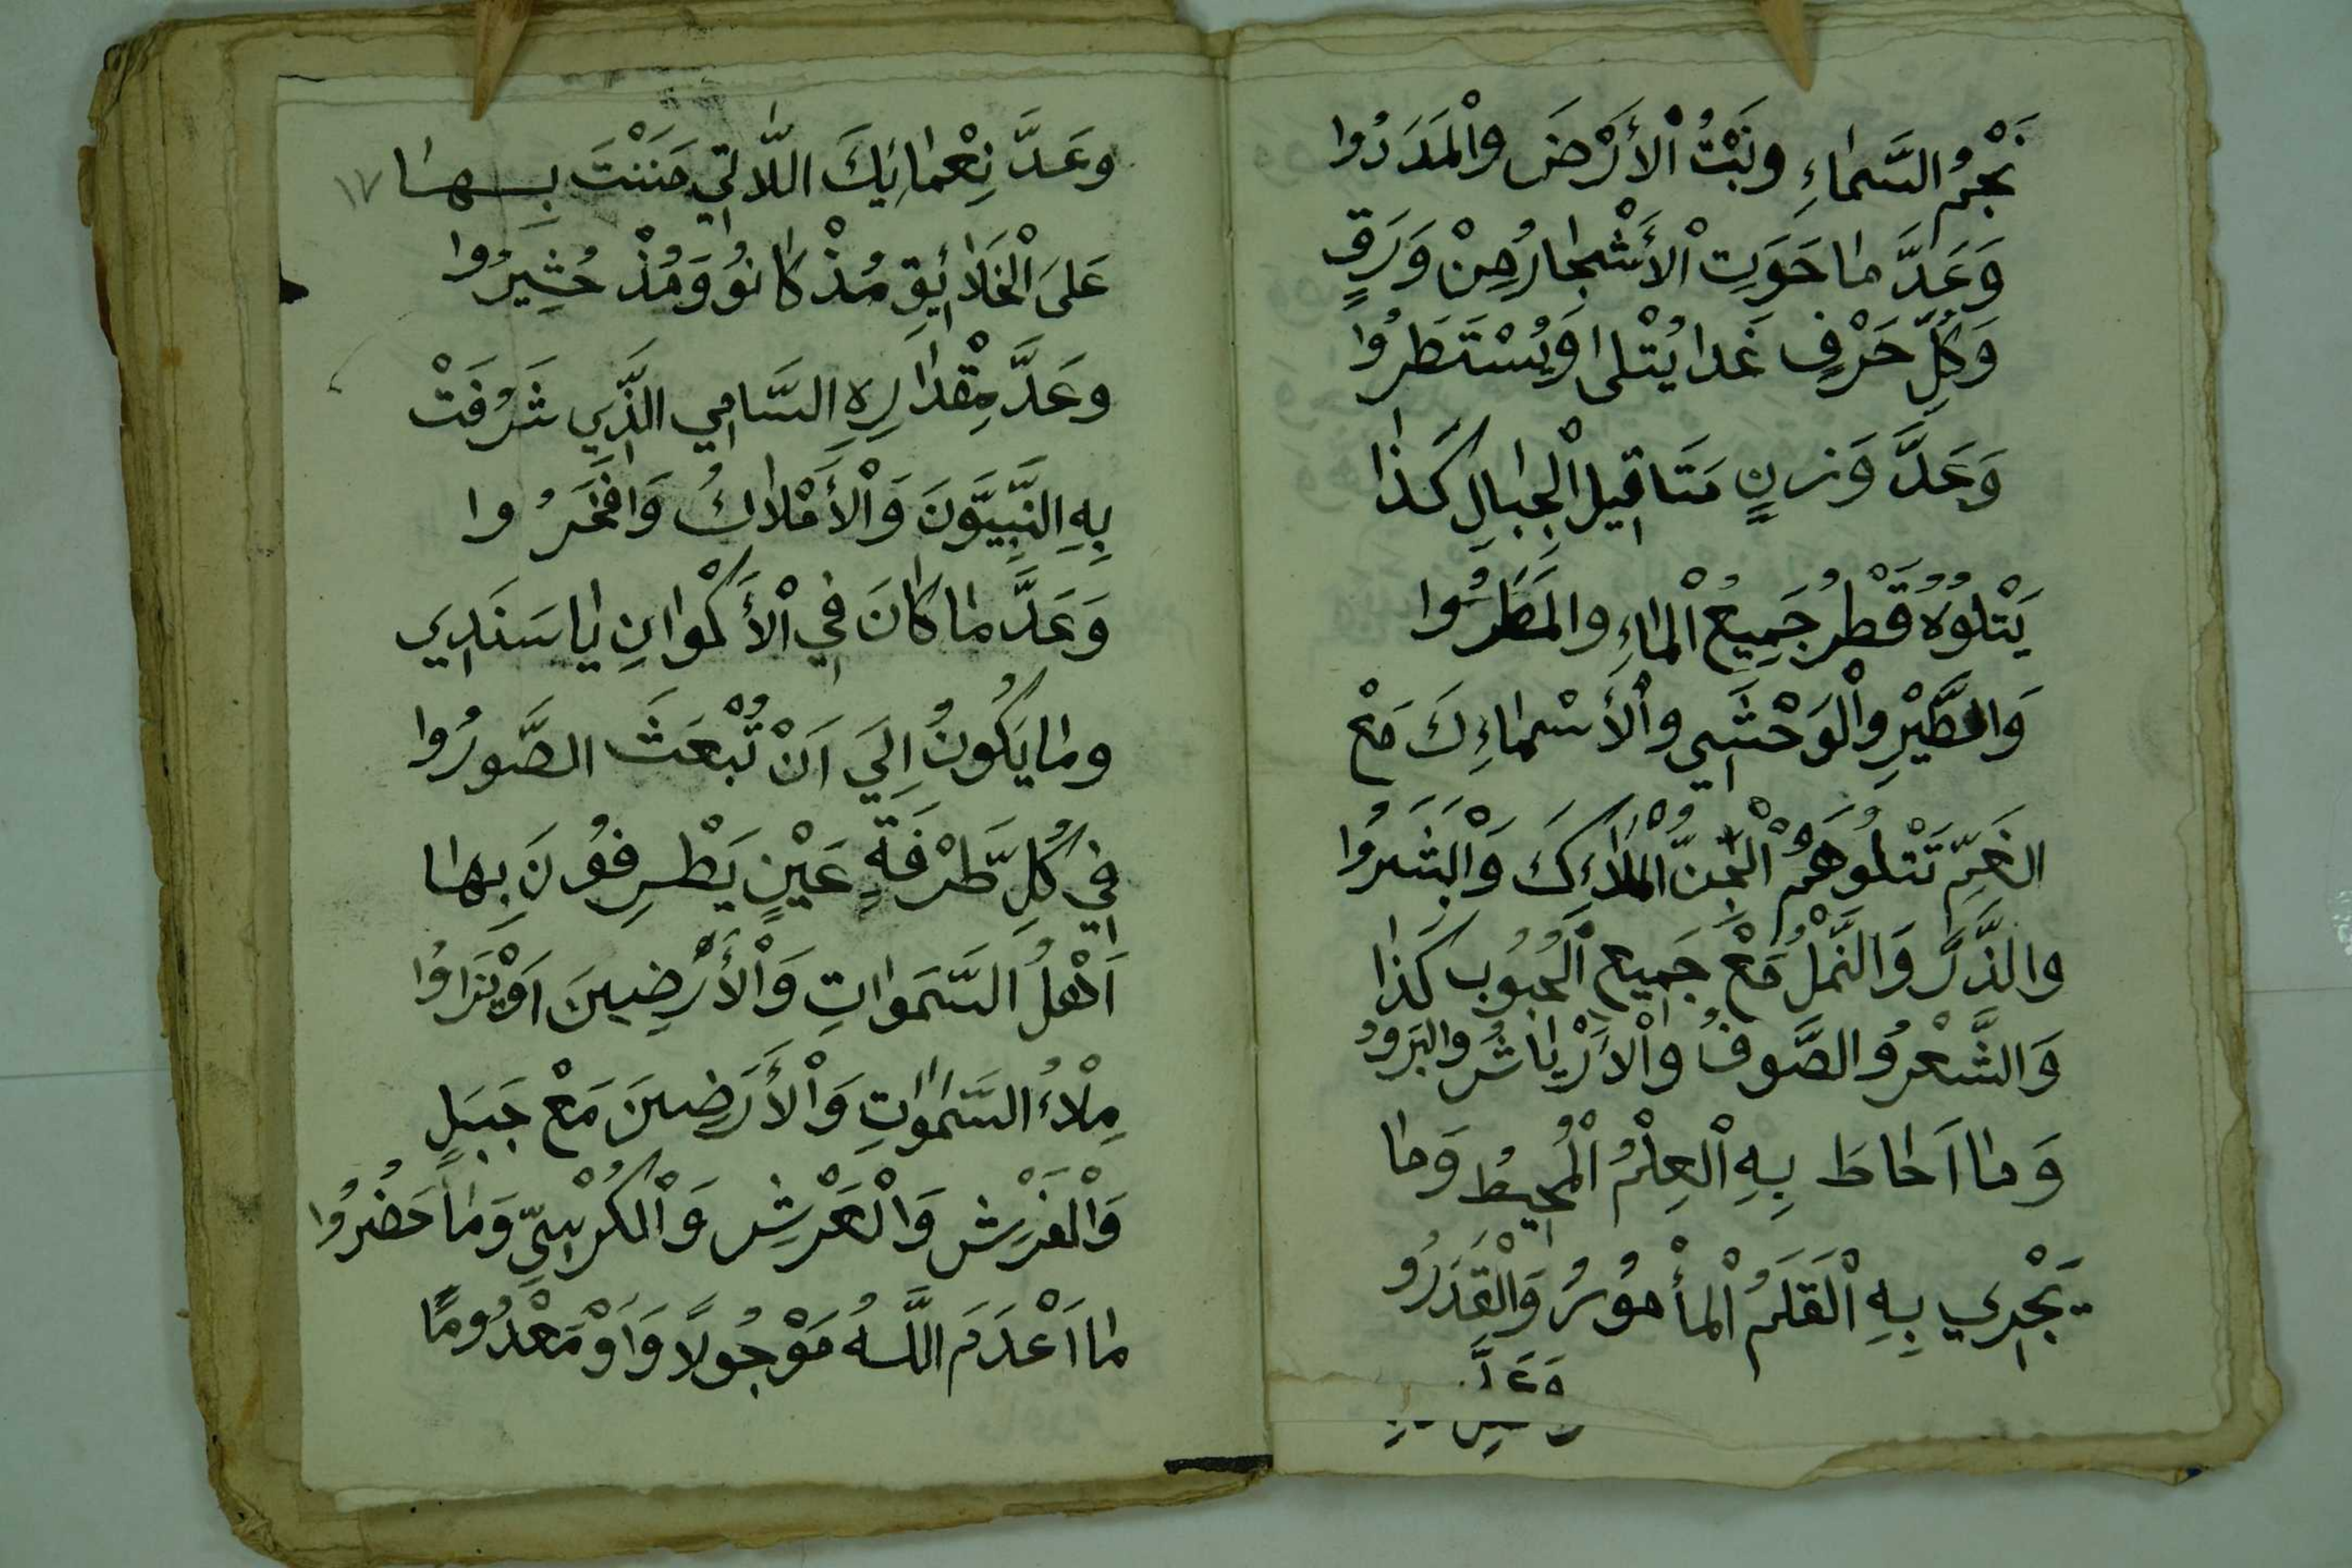 نَجْمُ السَّمَاءِ وَنَبْتُ الْأَرْضَ وَالْمَدَدُوا
وَعَدَّ مَا حَوَتِ الْأَشْجَارُ مِنْ وَرَقٍ
وَكُلِّ حَرْفٍ غَدا يُتْلى وَيُسْتَطَرُوا
وَعَدَّ وَزنٍ مَثَاقِيلِ الْجِبَالِ كَذَا
يَتْلُوهُ قَطْرُ جَمِيعُ الْمَاءِ وَالْمَطَرُوا
وَالطَّيْرِ وَالْوَحْشِي وَالْأَسْمَاءِكَ مَعْ
النعِمِّ تَتْلُوهُمْ الْجِنُّ الْمَلَاءِكَ وَالْبَشَرُوا
والذَّرُّ وَالنَّمْلُ مَعْ جَمِيعِ الْحُبُوبِ كَذَا
وَالشَّعْرُ والصُّوفُ والْأَرْيَاشُ والبَرَوُ
وَمَا اَحَاطَ بِهِ الْعِلْمُ الْمُحِيطُ وَمَا
يَجْرِي بِهِ الْقَلَمُ الْمأْمُوْرُ وَالْقَدَرُو
وَعَدَّ
وعَدَّ نِعْمَائِكَ اللَّاتِي مَنَنْتَ بِهَا ١٧
عَلَى الْخَلَائِيِقِ مُذْ كَانُوُ وَمُذْ حُشِيرُوا
وعَدَّ مِقْدَارِهِ السَّامِي الَّذِي شَرُفَتْ
بِهِ النَّبِيُّونَ وَالْأَمْلَاكُ وَافْتَخَرُوا
وَعَدَّ مَا كَانَ فِي الْأَكْوانِ يَا سَنَدِي
ومَا يَكُونُ اِلَى اَنْ تُبْعَثَ الصُّورُوا
فِي كُلِّ طَرْفَةِ عَيْنٍ يَطْرِفوُنَ بِهَا
اَهْلُ السَّمَوَاتِ وَالْأَرْضِينَ اَوْيَذَرُوا
مِلْأُ السَّمٰوَاتِ وَالْأَرَضِينَ مَعْ جَبَلٍ
وَالْفَرْشِ وَالْعَرْشِ وَالْكُرْسِيِّ وَمَا حَضُرُوا
مَا اَعْدَمَ اللَّهُ مَوْجُودًا وَاَوْ مَعْدُومًا